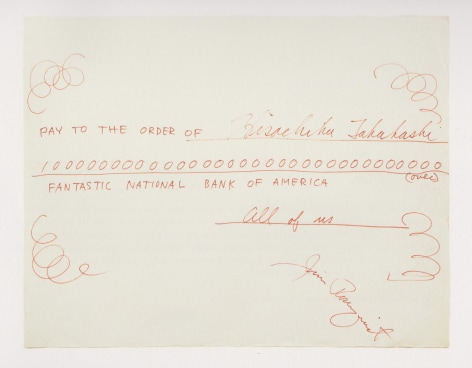 PAY TO THE ORDER OF Hisachika Takahashi
10000000000000000000000000000000000
(over)
FANTASTIC NATIONAL BANK OF AMERICA
All of us
Jim Rosenquist